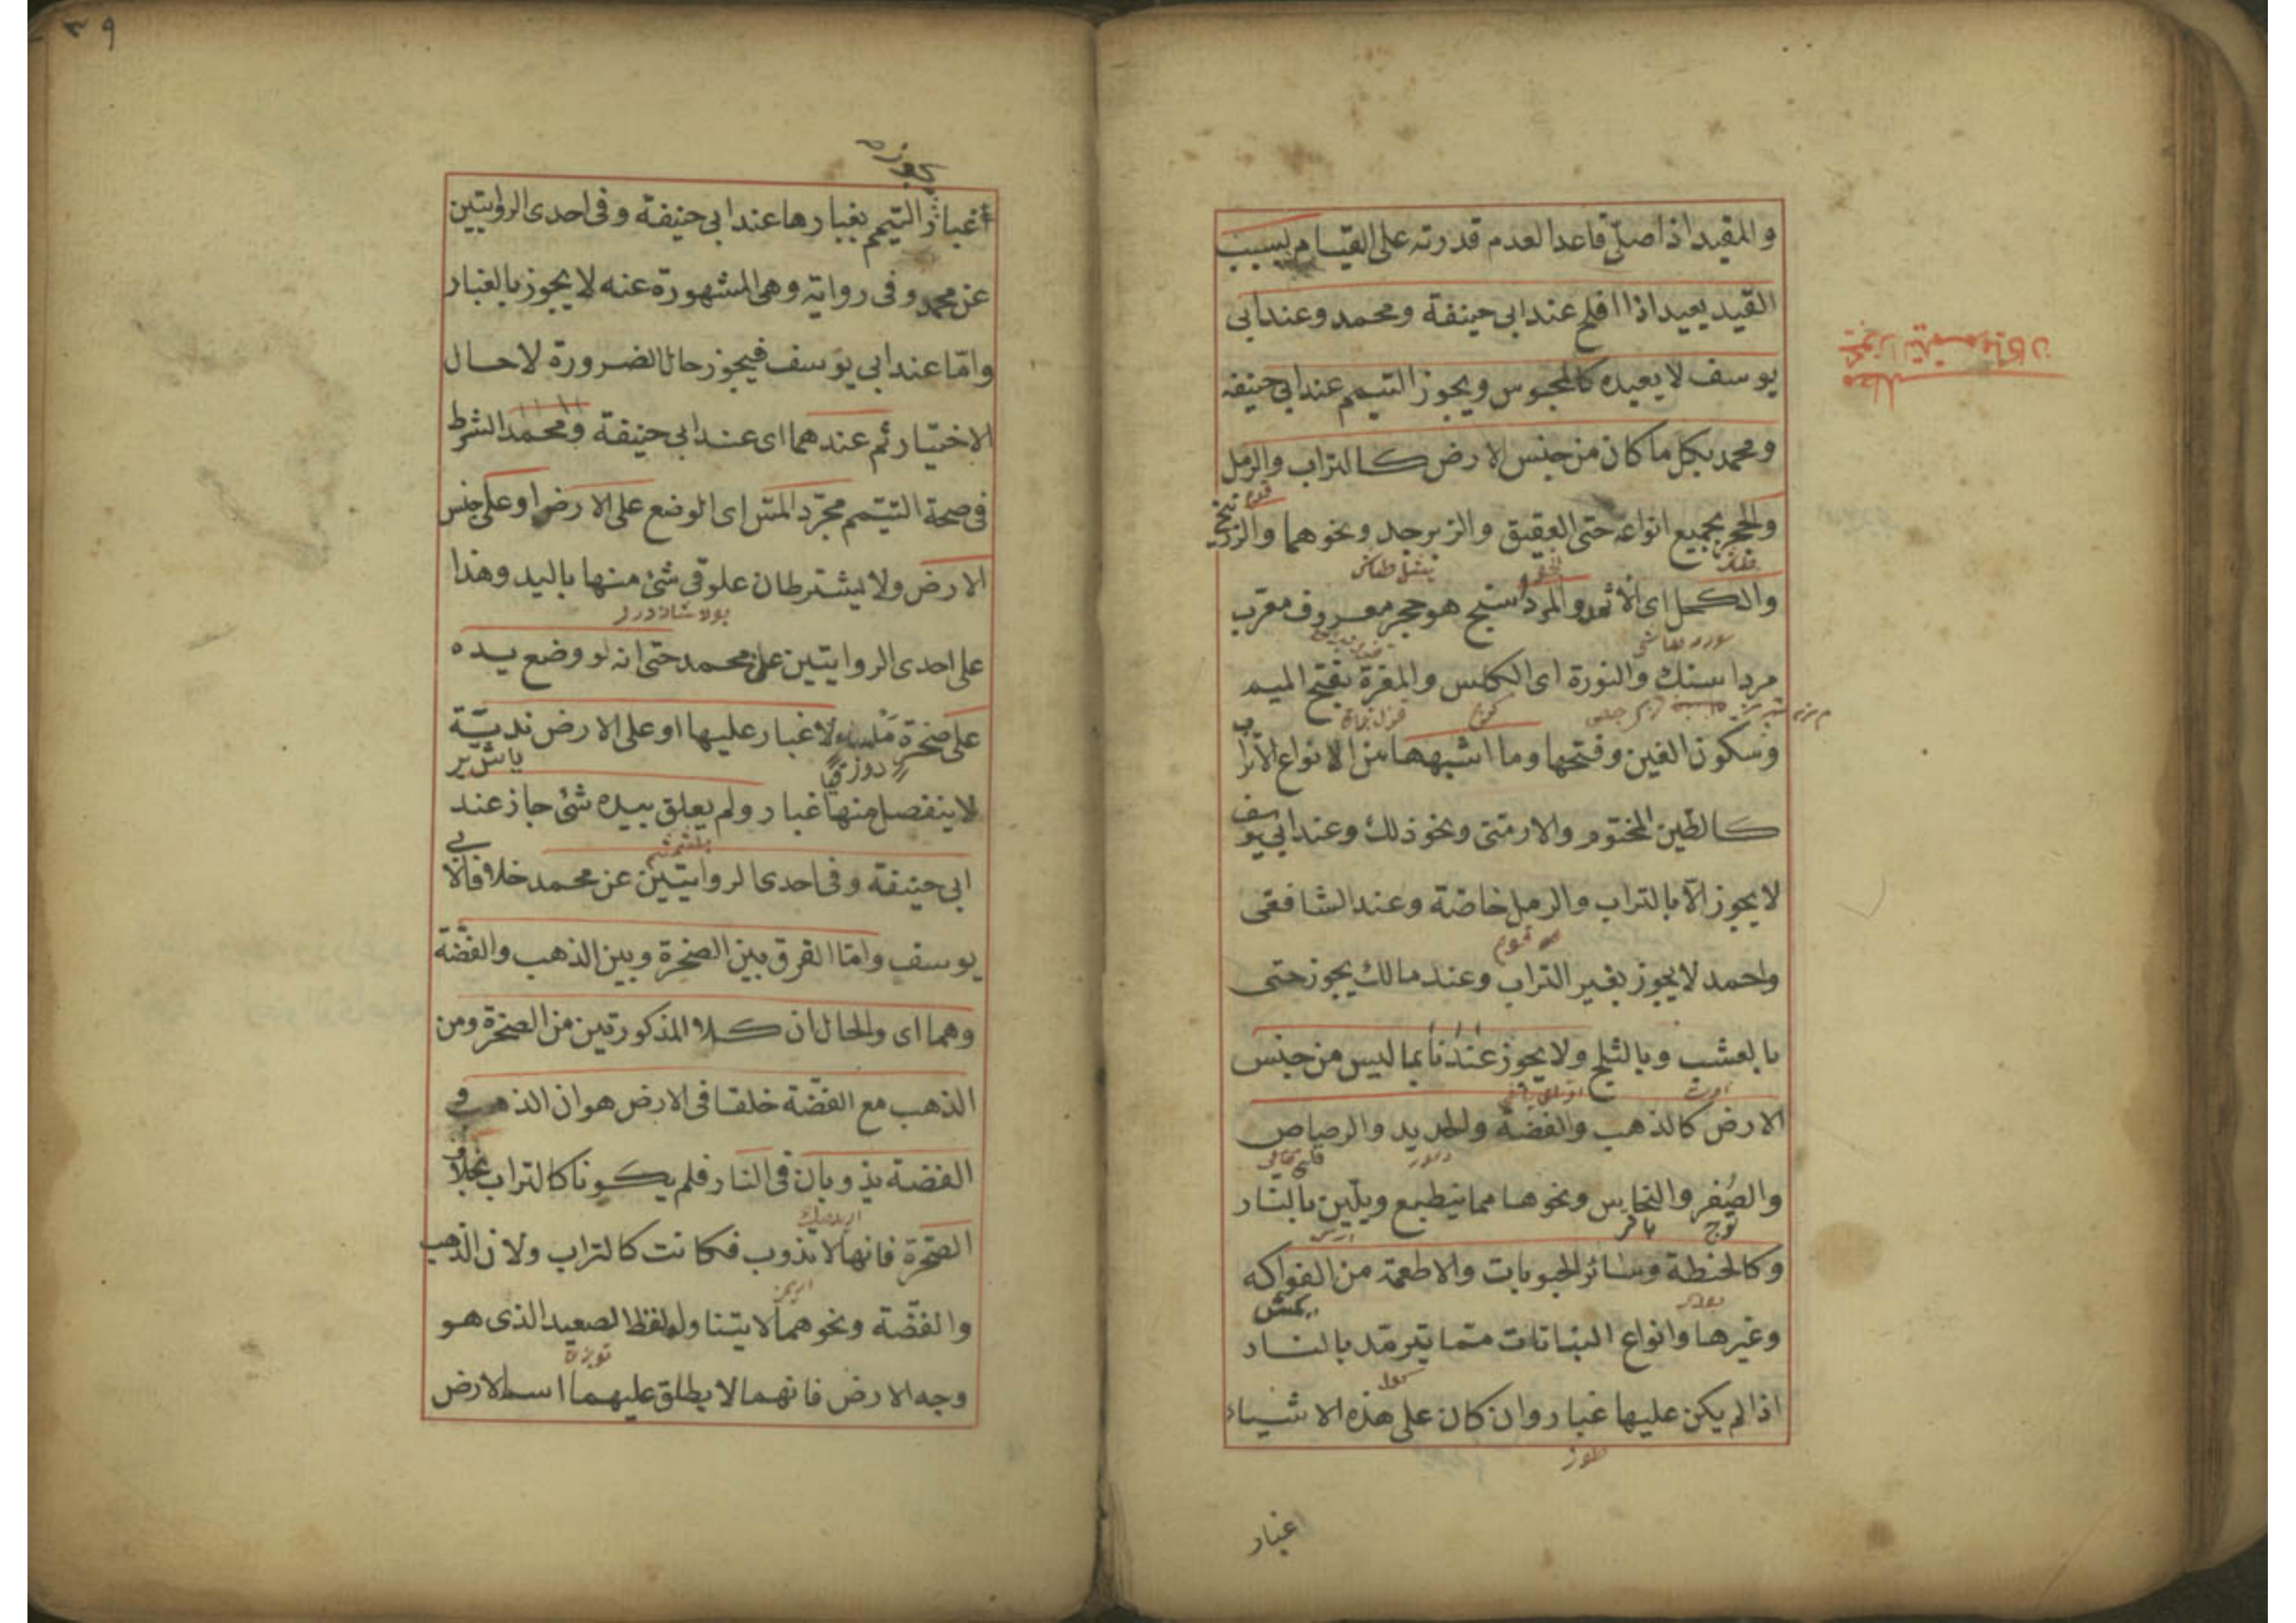 والمقيد اذا صلّى قاعدا لعدم قدرته على القيام بسبب
القيد يعيد اذا افلح عند ابى حنيفة ومحمد وعند ابى
يوسف لا يعيده كالمحبوس ويجوز التيمم عند ابى حنيفه
ومحمد بكل ما كان من جنس الارض كالتراب والرمل
والحجر بجميع انواعه حتى العقيق والزبرجد ونحوهما والزرنيخ
والكحل اى الاثمد والمرداسنج هو حجر معروف معرب
مرداسنك والنورة اى الكلس والمغرة بفتح الميم
وسكون الغين وفتحها وما اشبهها من الانواع الاتراب
كالطين المختوم والارمنى ونحو ذلك وعند ابى يوسف
لا يجوز الّا بالتراب والرمل خاصّة وعند الشافعى
واحمد لا يجوز بغير التراب وعند مالك يجوز حتى
بالعشب وبالثلج ولا يجوز عندنا بما ليس من جنس
الارض كالذهب والفضة والحديد والرصاص
والصفر والنحاس ونحوها مما ينطبع ويلين بالنار
وكالحنطة وسائر الحبوبات والاطعمة من الفواكه
وغيرها وانواع النباتات ممّا يترمّد بالنار
اذا لم يكن عليها غبار وان كان على هذه الاشياء
غبار
٣٩
غبار التيمم بغبارها عند ابى حنيفة وفى احدى الروايتين
عن محمد وفى رواية وهى المشهورة عنه لا يجوز بالغبار
وامّا عند ابى يوسف فيجوز حال الضرورة لا حال
الاختيار ثم عندهما اى عند ابى حنيفة ومحمد الشرط
فى صحة التيمم مجرّد المسّ اى الوضع على الارض او على جنس
الارض ولا يشترطان علوق شئ منها باليد وهذا
على احدى الروايتين عن محمد حتى انه لو وضع يده
على صخرة ملساء لا غبار عليها او على الارض نديّة
لا ينفصل منها غبار ولم يعلق بيده شئ جاز عند
ابى حنيفة وفى احدى الروايتين عن محمد خلافا لابى
يوسف وامّا الفرق بين الصخرة وبين الذهب والفضّة
وهما اى والحال ان كلا المذكورتين من الصخرة ومن
الذهب مع الفضّة خلقا فى الارض هو ان الذهب و
الفضة يذوبان فى النار فلم يكونا كالتراب بخلاف
الصخرة فانها لا تذوب فكانت كالتراب ولان الذهب
والفضّة ونحوهما لا يتناوله لفظ الصعيد الذى هو
وجه الارض فانهما لا يطلق عليهما اسم الارض